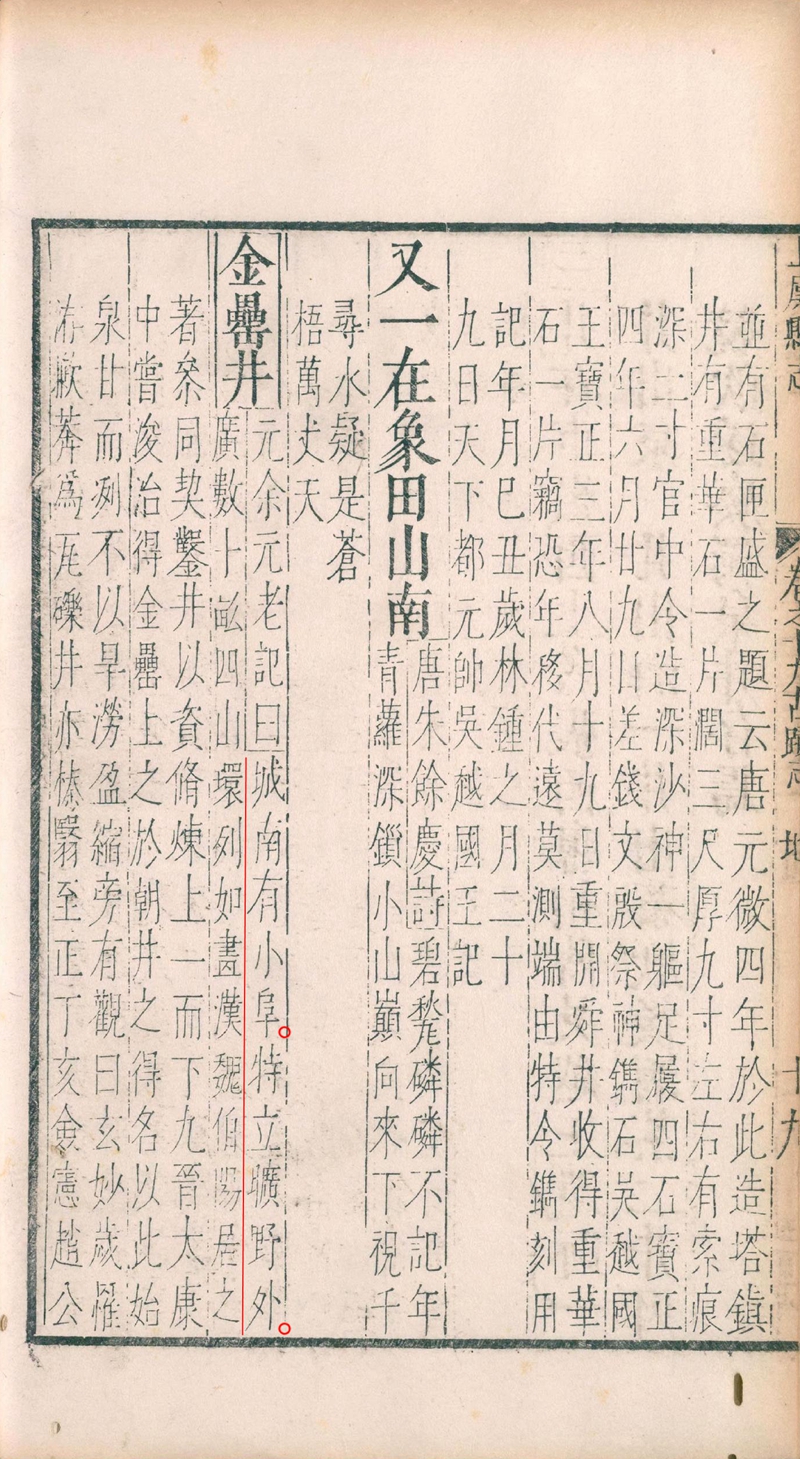 上虞縣志 卷之十九古蹟志 地 十九
並有石匣盛之題云唐元微四年於此造塔鎮
井有重華石一片濶三尺厚九寸左右有索痕
深二寸官中令造深沙神一軀足履四石寶正
四年六月廿九日差錢文殷祭神鐫石吳越國
王寶正三年八月十九日重開舜井收得重華
石一片竊恐年移代遠莫測端由特令鐫刻用
記年月巳丑歲林鍾之月二十
九日天下都元帥吳越國王記
又一在象田山南
唐朱餘慶詩碧甃磷磷不記年
青蘿深鎖小山巔向來下視千
尋水疑是蒼
梧萬丈天
金罍井
元余元老記曰城南有小阜特立曠野外
廣數十畝四山環列如畫漢魏伯陽居之
著叅同契鑿井以資脩煉上一而下九晉太康
中嘗浚治得金罍上之於朝井之得名以此始
泉甘而冽不以旱澇盈縮旁有觀曰玄妙歲懼
洊歉莽爲瓦礫井亦榛翳至正丁亥僉憲趙公